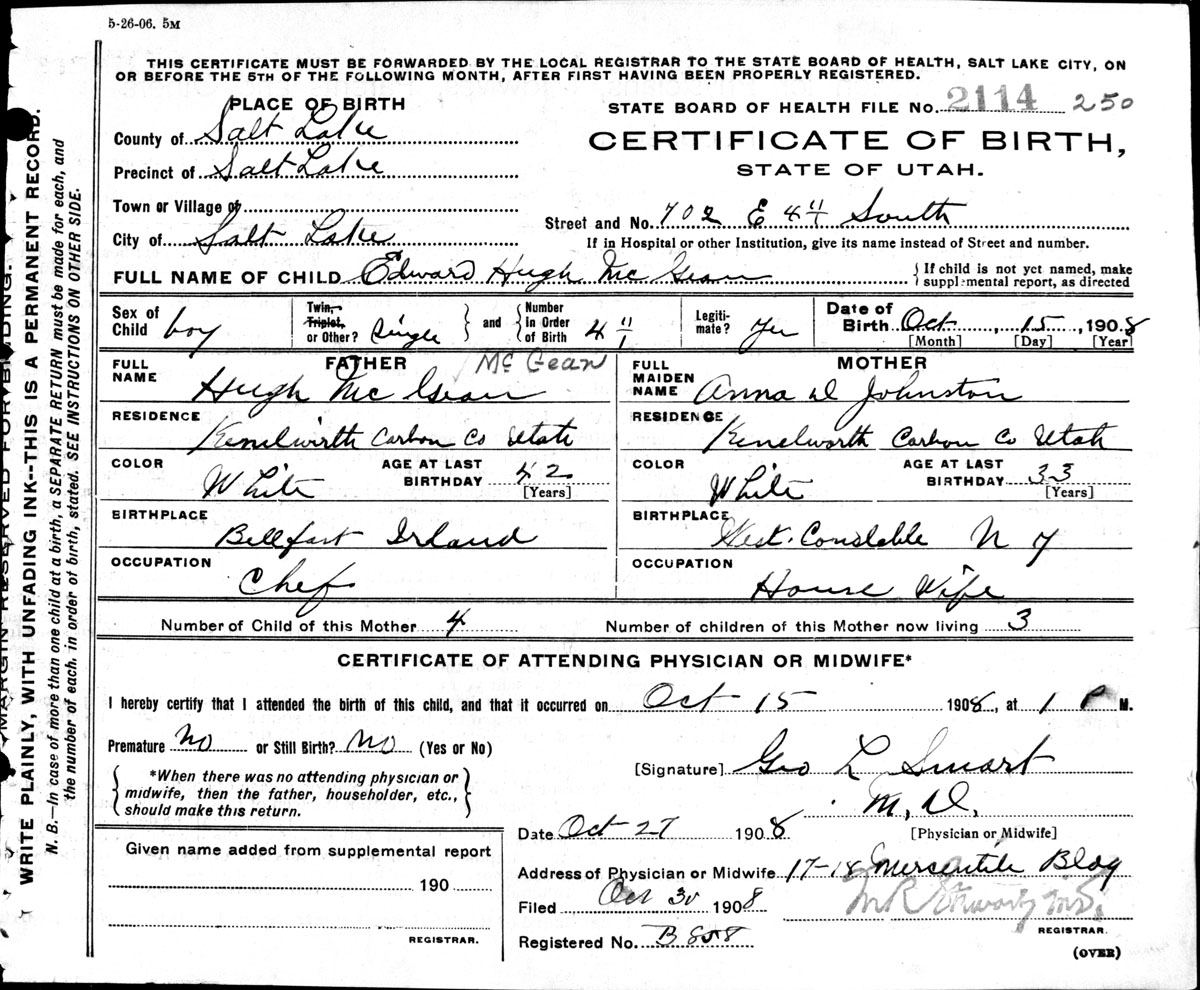 5-26-06. 5M
THIS CERTIFICATE MUST BE FORWARDED BY THE LOCAL REGISTRAR TO THE STATE BOARD OF HEALTH, SALT LAKE CITY, ON
OR BEFORE THE 5TH OF THE FOLLOWING MONTH, AFTER FIRST HAVING BEEN PROPERLY REGISTERED.
MARGIN RESERVED FOR BINDING.
WRITE PLAINLY, WITH UNFADING INK--THIS IS A PERMANENT RECORD.
N. B.—In case of more than one child at a birth, a SEPARATE RETURN must be made for each, and
the number of each, in order of birth, stated. SEE INSTRUCTIONS ON OTHER SIDE.
PLACE OF BIRTH
County of Salt Lake
Precinct of Salt Lake
Town or Village of
City of Salt Lake
STATE BOARD OF HEALTH FILE NO. 2114 250
CERTIFICATE OF BIRTH,
STATE OF UTAH.
Street and No. 702 E 4 South
If in Hospital or other Institution, give its name instead of Street and number.
FULL NAME OF CHILD Edward Hugh Mc Gean
If child is not yet named, make
supplemental report, as directed
Sex of Child boy
Twin, Triplet, or Other? Single
and Number in Order of Birth 4
Legitimate? Yes
Date of Birth Oct, 15, 1908
[Month] [Day] [Year]
FATHER
FULL NAME Hugh Mc Gean
McGean
RESIDENCE
Kenilwirth Carbon Co Utah
COLOR White
AGE AT LAST BIRTHDAY 42
[Years]
BIRTHPLACE
Bellfast Irland
OCCUPATION
Chef
MOTHER
FULL MAIDEN NAME Anna D Johnston
RESIDENCE
Kenelworth Carbon Co Utah
COLOR White
AGE AT LAST BIRTHDAY 33
[Years]
BIRTHPLACE
West. Constable N Y
OCCUPATION
House Wife
Number of Child of this Mother 4
Number of children of this Mother now living 3
CERTIFICATE OF ATTENDING PHYSICIAN OR MIDWIFE*
I hereby certify that I attended the birth of this child, and that it occurred on Oct 15 1908, at 1 P M.
Premature No or Still Birth? No (Yes or No)
*When there was no attending physician or
midwife, then the father, householder, etc.,
should make this return.
[Signature] Geo L Smart
M. D.
[Physician or Midwife]
Date Oct 27 1908
Given name added from supplemental report
190
REGISTRAR.
Address of Physician or Midwife 17-18 Mercentile Bldg
Filed Oct 30 1908
REGISTRAR.
Registered No. B 858
(OVER)